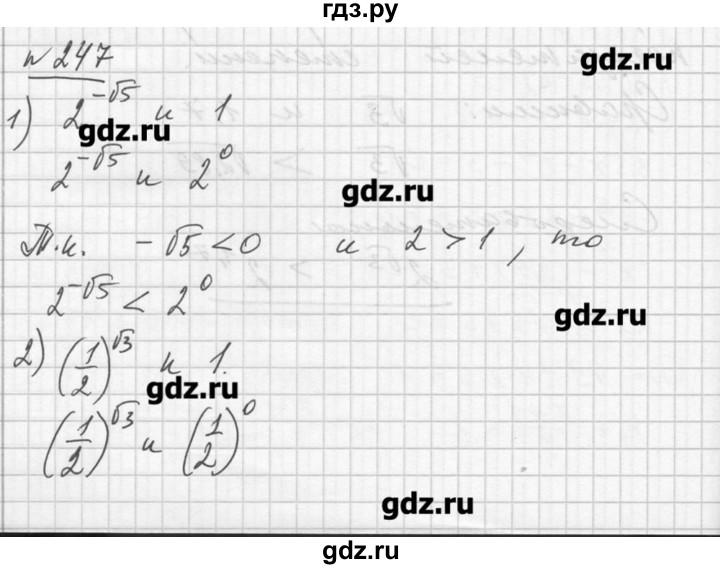 гдз.ру
№ 247
gdz.ru
1) 2^{-√5} и 1
gdz.ru
2^{-√5} и 2^0
gdz.ru
Т.к. -√5 < 0 и 2 > 1, то
2^{-√5} < 2^0
gdz.ru
2) (1/2)^{√3} и 1.
gdz.ru
(1/2)^{√3} и (1/2)^0
gdz.ru
gdz.ru